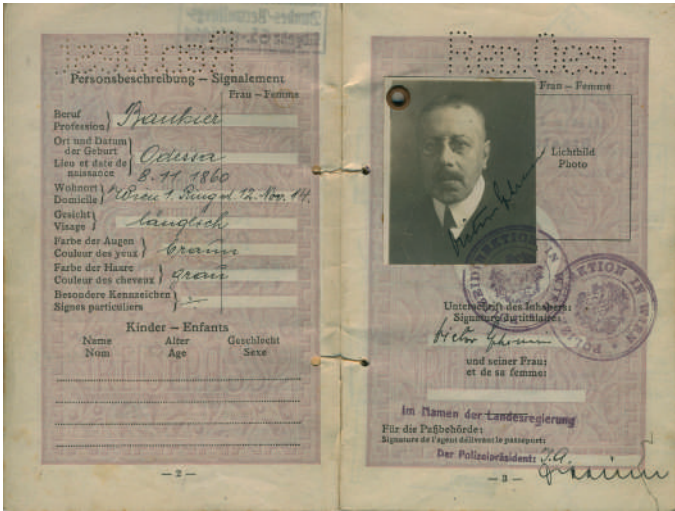 Personsbeschreibung – Signalement
Frau – Femme
Beruf
Profession } Bankier
Ort und Datum
der Geburt
Lieu et date de
naissance } Odessa
8. 11. 1860
Wohnort
Domicile } Wien 1. Ring d. 12. Nov. 14.
Gesicht
Visage } länglich
Farbe der Augen
Couleur des yeux } braun
Farbe der Haare
Couleur des cheveux } grau
Besondere Kennzeichen
Signes particuliers } –
Kinder – Enfants
Name Alter Geschlecht
Nom Age Sexe
– 2 –
Rep. Oest.
Frau – Femme
Lichtbild
Photo
POLIZEIDIREKTION IN WIEN
POLIZEIDIREKTION IN WIEN
Unterschrift des Inhabers:
Signature du titulaire:
Victor
und seiner Frau:
et de sa femme:
Im Namen der Landesregierung
Für die Paßbehörde:
Signature de l'agent délivrant le passeport:
Der Polizeipräsident: I.A.
– 3 –